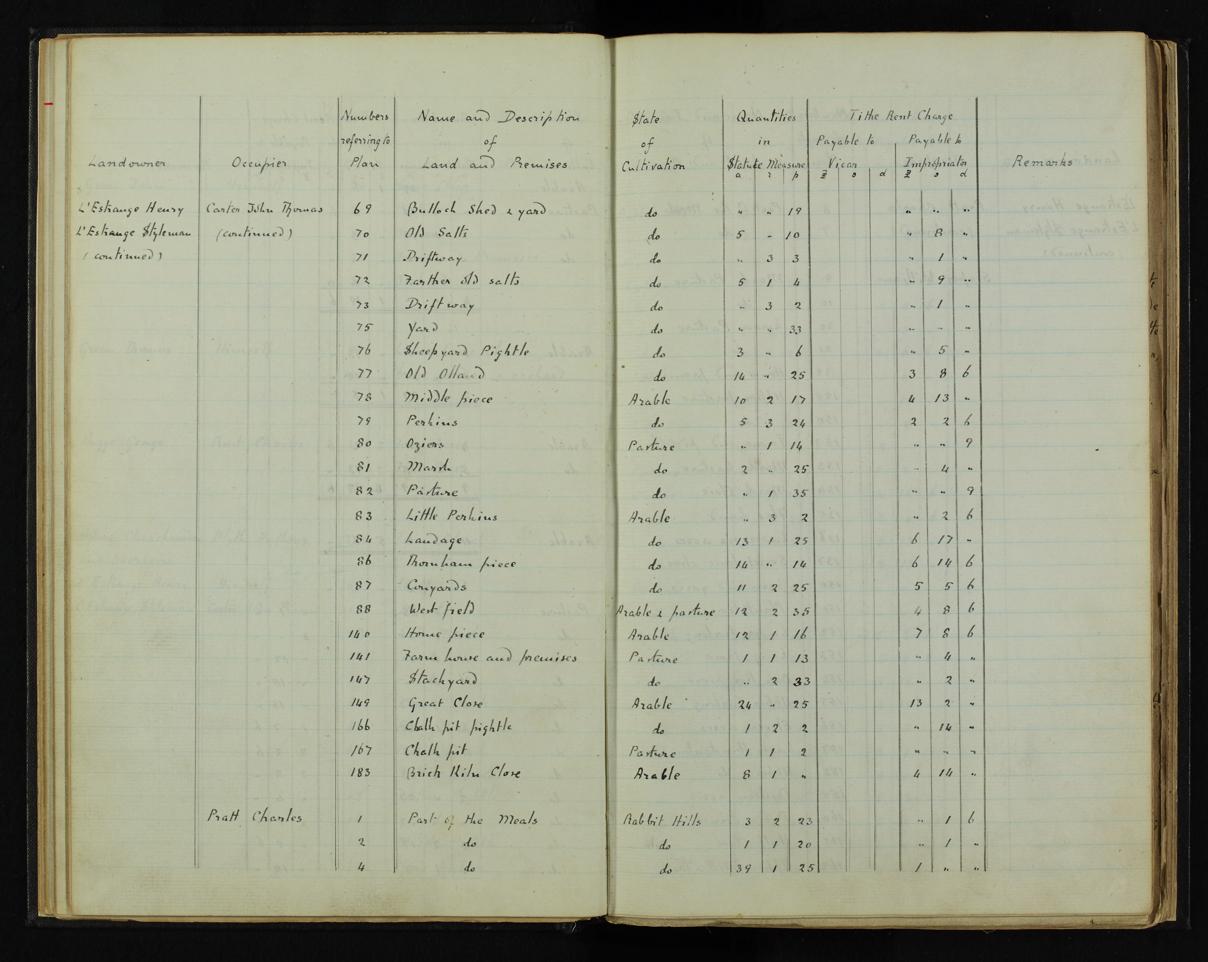 Landowner Occupier Numbers referring to Plan Name and Description of Land and Premises State of Cultivation Quantities in Statute Measure Tithe Rent Charge Payable to Vicar Payable to Impropriator Remarks
a r p £ s d £ s d
L'Estrange Henry Carter John Thomas 69 Bullock Shed & yard do " " 19 " " "
L'Estrange Styleman (continued) 70 Old Salts do 5 - 10 " 8 "
(continued) 71 Driftway do " 3 3 " 1 "
72 Farther old salts do 5 1 4 " 9 "
73 Driftway do " 3 2 " 1 "
75 Yard do " " 33 " " "
76 Sheepyard Pightle do 3 " 6 " 5 "
77 Old Olland do 14 " 25 3 8 6
78 Middle piece Arable 10 2 17 4 13 "
79 Perkins do 5 3 24 2 2 6
80 Oziers Pasture " 1 14 " " 9
81 Marsh do 2 " 25 " 4 "
82 Pasture do " 1 35 " " 9
83 Little Perkins Arable " 3 2 " 2 6
84 Landage do 13 1 25 6 17 "
86 Thornham piece do 14 " 14 6 14 6
87 Conyards do 11 2 25 5 5 6
88 West field Arable & pasture 12 2 35 4 8 6
140 Home piece Arable 12 1 16 7 8 6
141 Farm house and premises Pasture 1 1 13 " 4 "
147 Stackyard do " 2 33 " 2 "
149 Great Close Arable 24 " 25 13 2 "
166 Chalk pit pightle do 1 2 2 " 14 "
167 Chalk pit Pasture 1 1 2 " " "
183 Brick Kiln Close Arable 8 1 " 4 14 "
Pratt Charles 1 Part of the Meals Rabbit Hills 3 2 23 " 1 6
2 do do 1 1 20 " 1 "
4 do do 39 1 25 1 " "